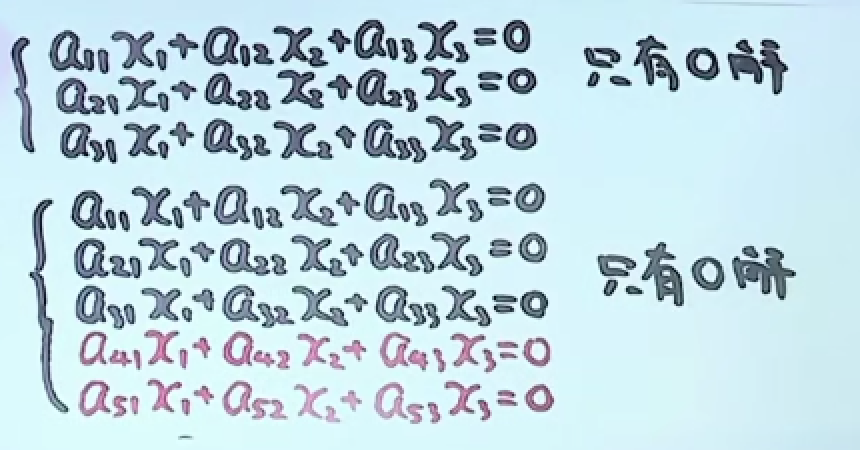 a₁₁x₁+a₁₂x₂+a₁₃x₃=0 只有0解
a₂₁x₁+a₂₂x₂+a₂₃x₃=0
a₃₁x₁+a₃₂x₂+a₃₃x₃=0
a₁₁x₁+a₁₂x₂+a₁₃x₃=0
a₂₁x₁+a₂₂x₂+a₂₃x₃=0 只有0解
a₃₁x₁+a₃₂x₂+a₃₃x₃=0
a₄₁x₁+a₄₂x₂+a₄₃x₃=0
a₅₁x₁+a₅₂x₂+a₅₃x₃=0